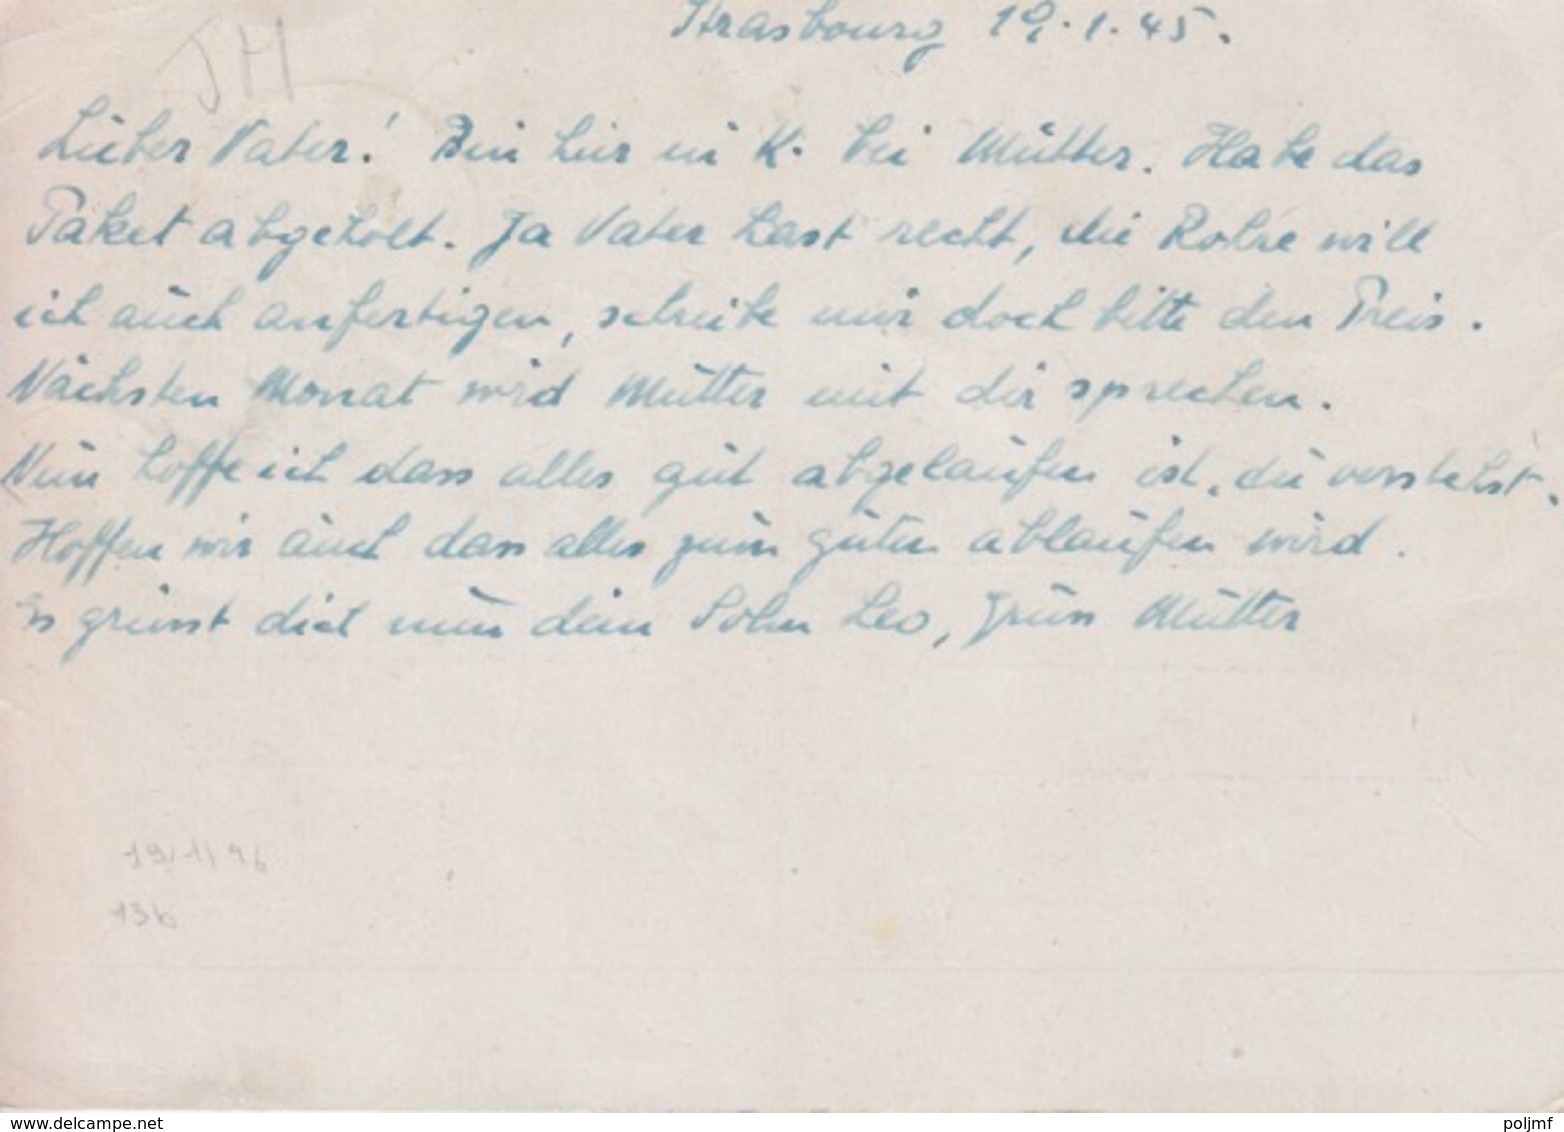 Strasbourg 19.1.45.
JH
Lieber Vater! Bin hier in K. bei Mutter. Habe das
Paket abgeholt. Ja Vater hast recht, die Rohre will
ich auch anfertigen, schreibe mir doch bitte den Preis.
Nächsten Monat wird Mutter mit dir sprechen.
Nun hoffe ich dass alles gut abgelaufen ist, du verstehst.
Hoffen wir auch dass alles zum guten ablaufen wird.
Es grüsst dich nun dein Sohn Leo, Gruss Mutter
19/1/46
136
www.delcampe.net
poljmf